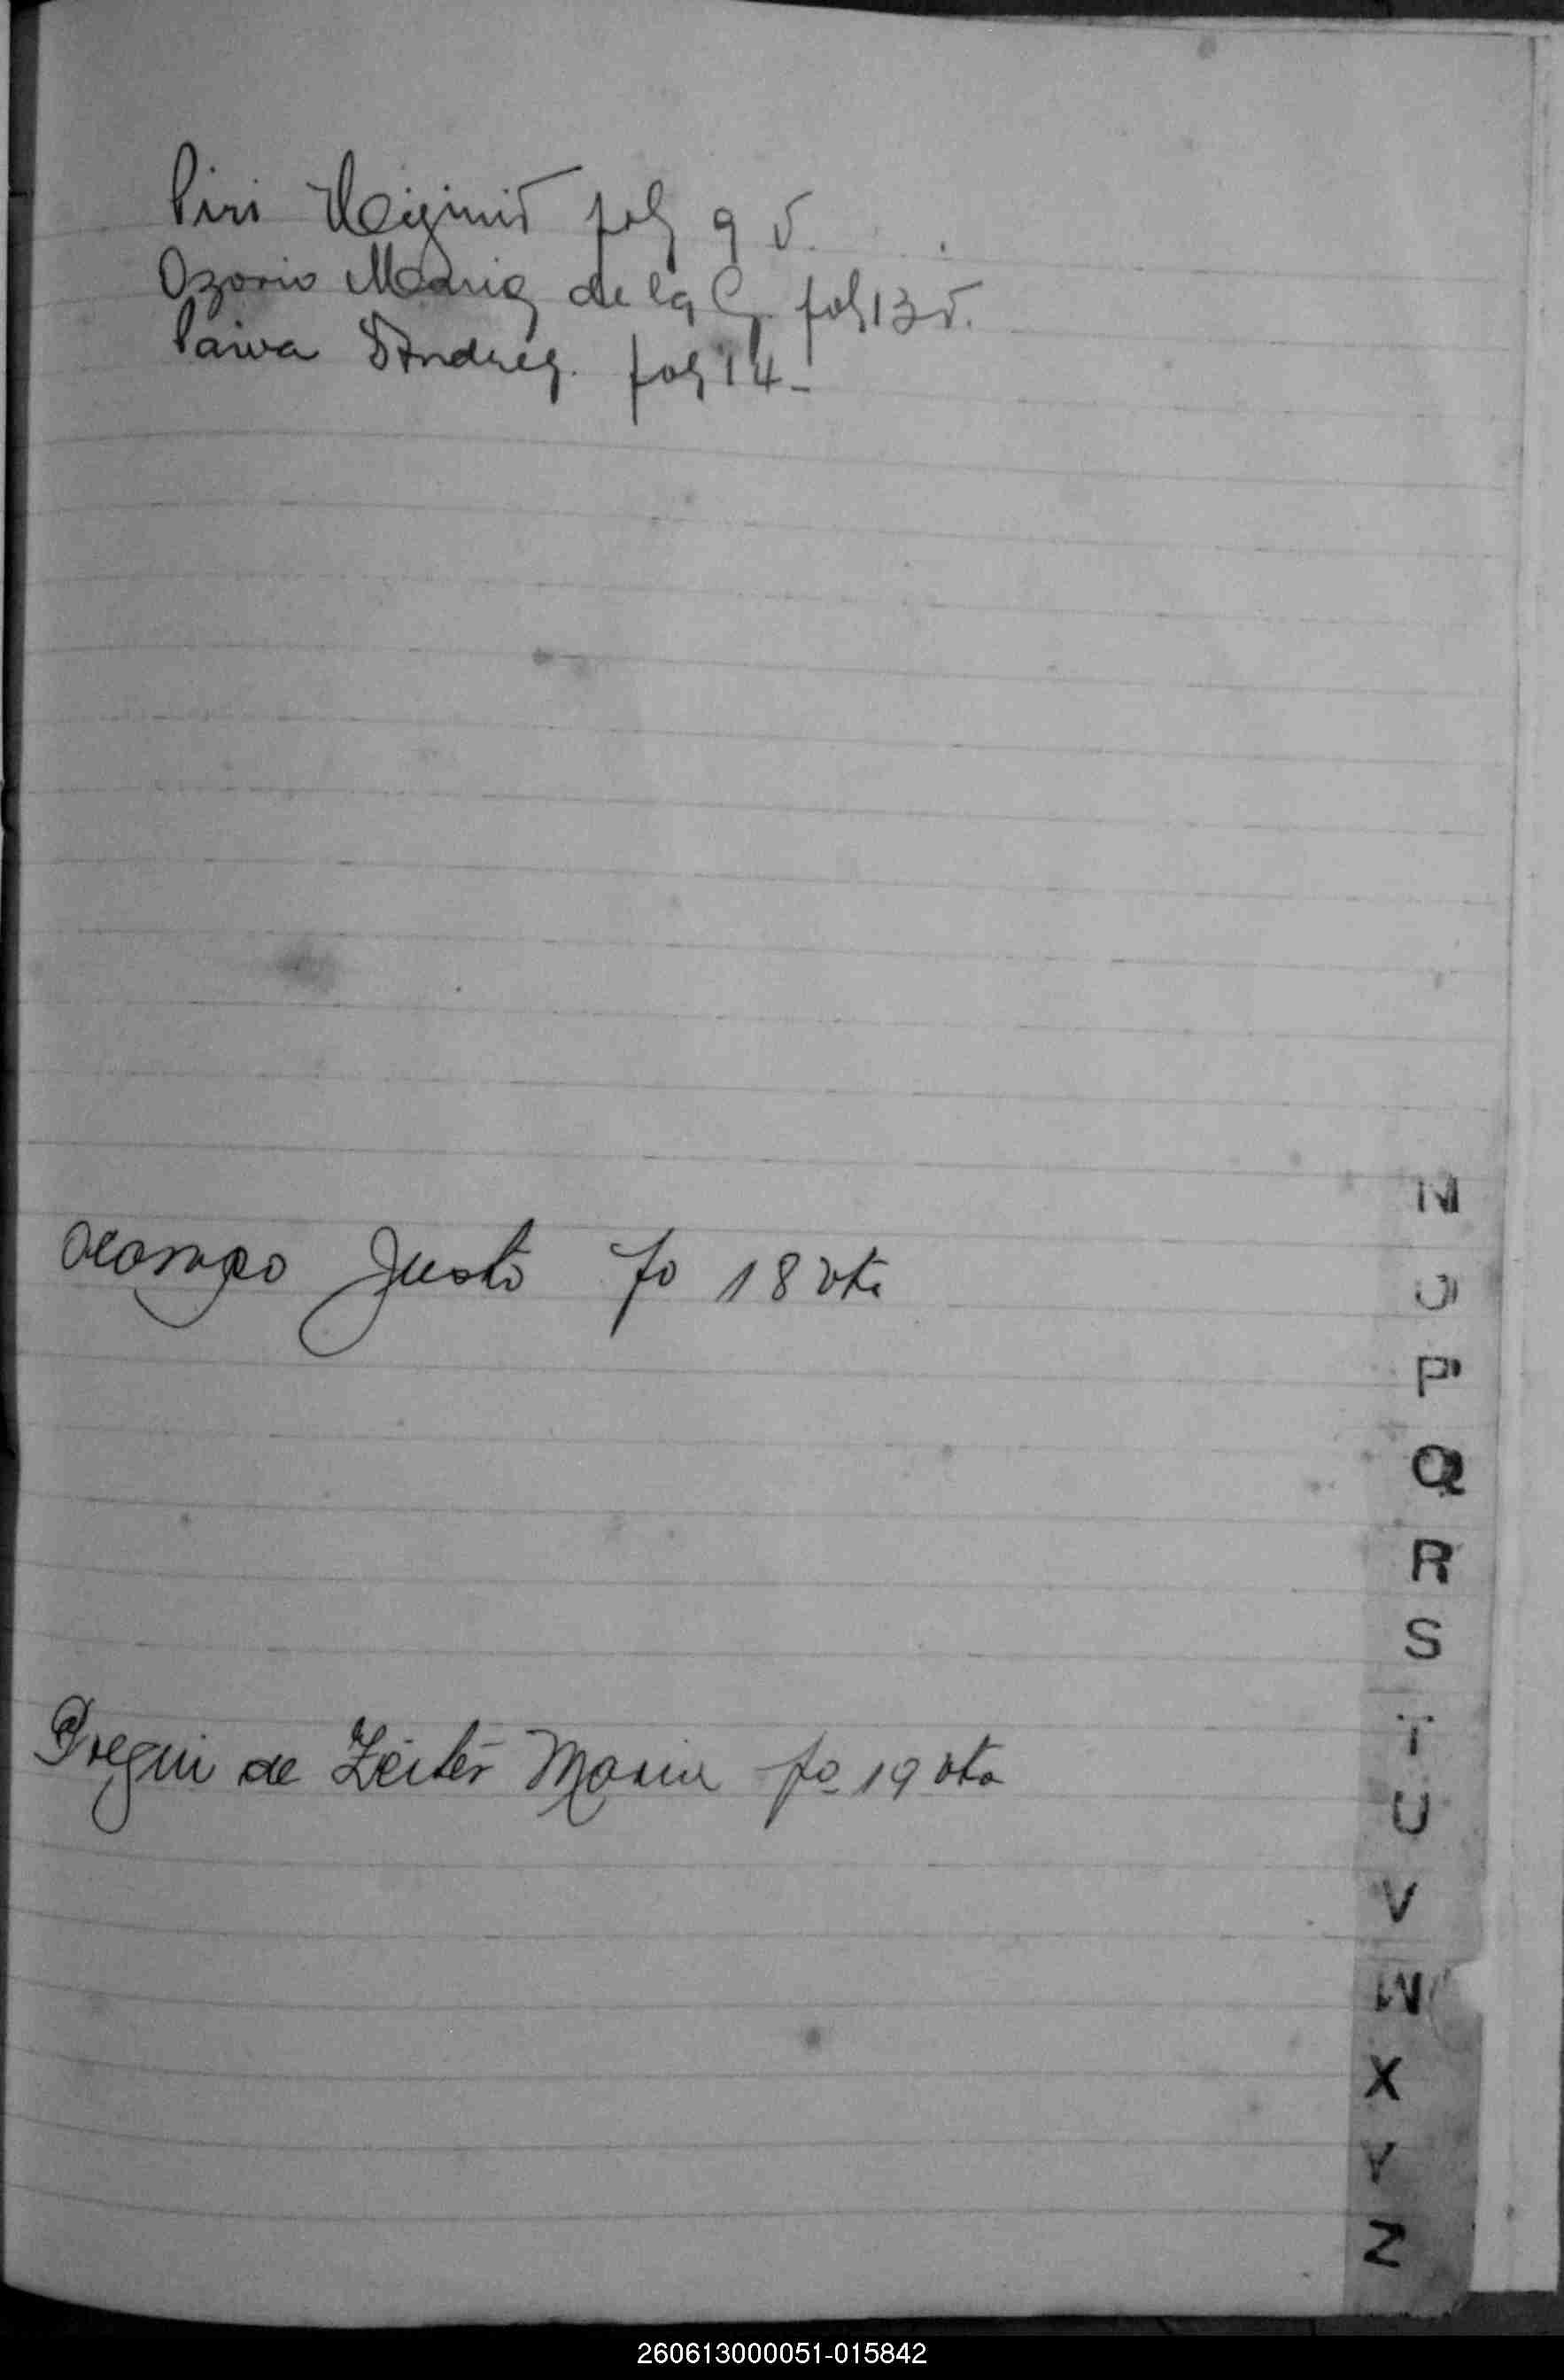 Piris Higinio fol 9 v.
Ozorio Maria de la C. fol 13 v.
Paiva Andrea. fol 14-
N
Ocampo Justo fo 18 vta
O
P
Q
R
S
de Maria fo 19 vta
T
U
V
W
X
Y
Z
260613000051-015842